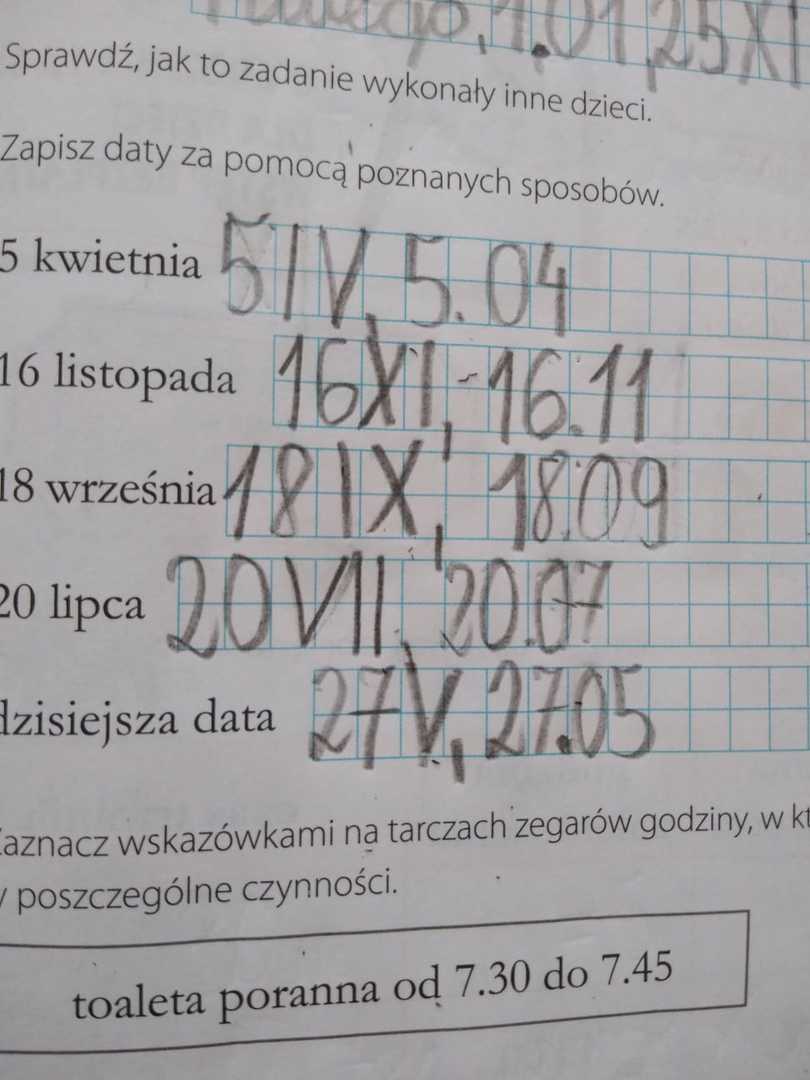 , 1.01, 25XI
Sprawdź, jak to zadanie wykonały inne dzieci.
Zapisz daty za pomocą poznanych sposobów.
5 kwietnia 5IV, 5.04
16 listopada 16XI, 16.11
18 września 18IX, 18.09
20 lipca 20VII, 20.07
dzisiejsza data 27V, 27.05
Zaznacz wskazówkami na tarczach zegarów godziny, w kt
y poszczególne czynności.
toaleta poranna od 7.30 do 7.45